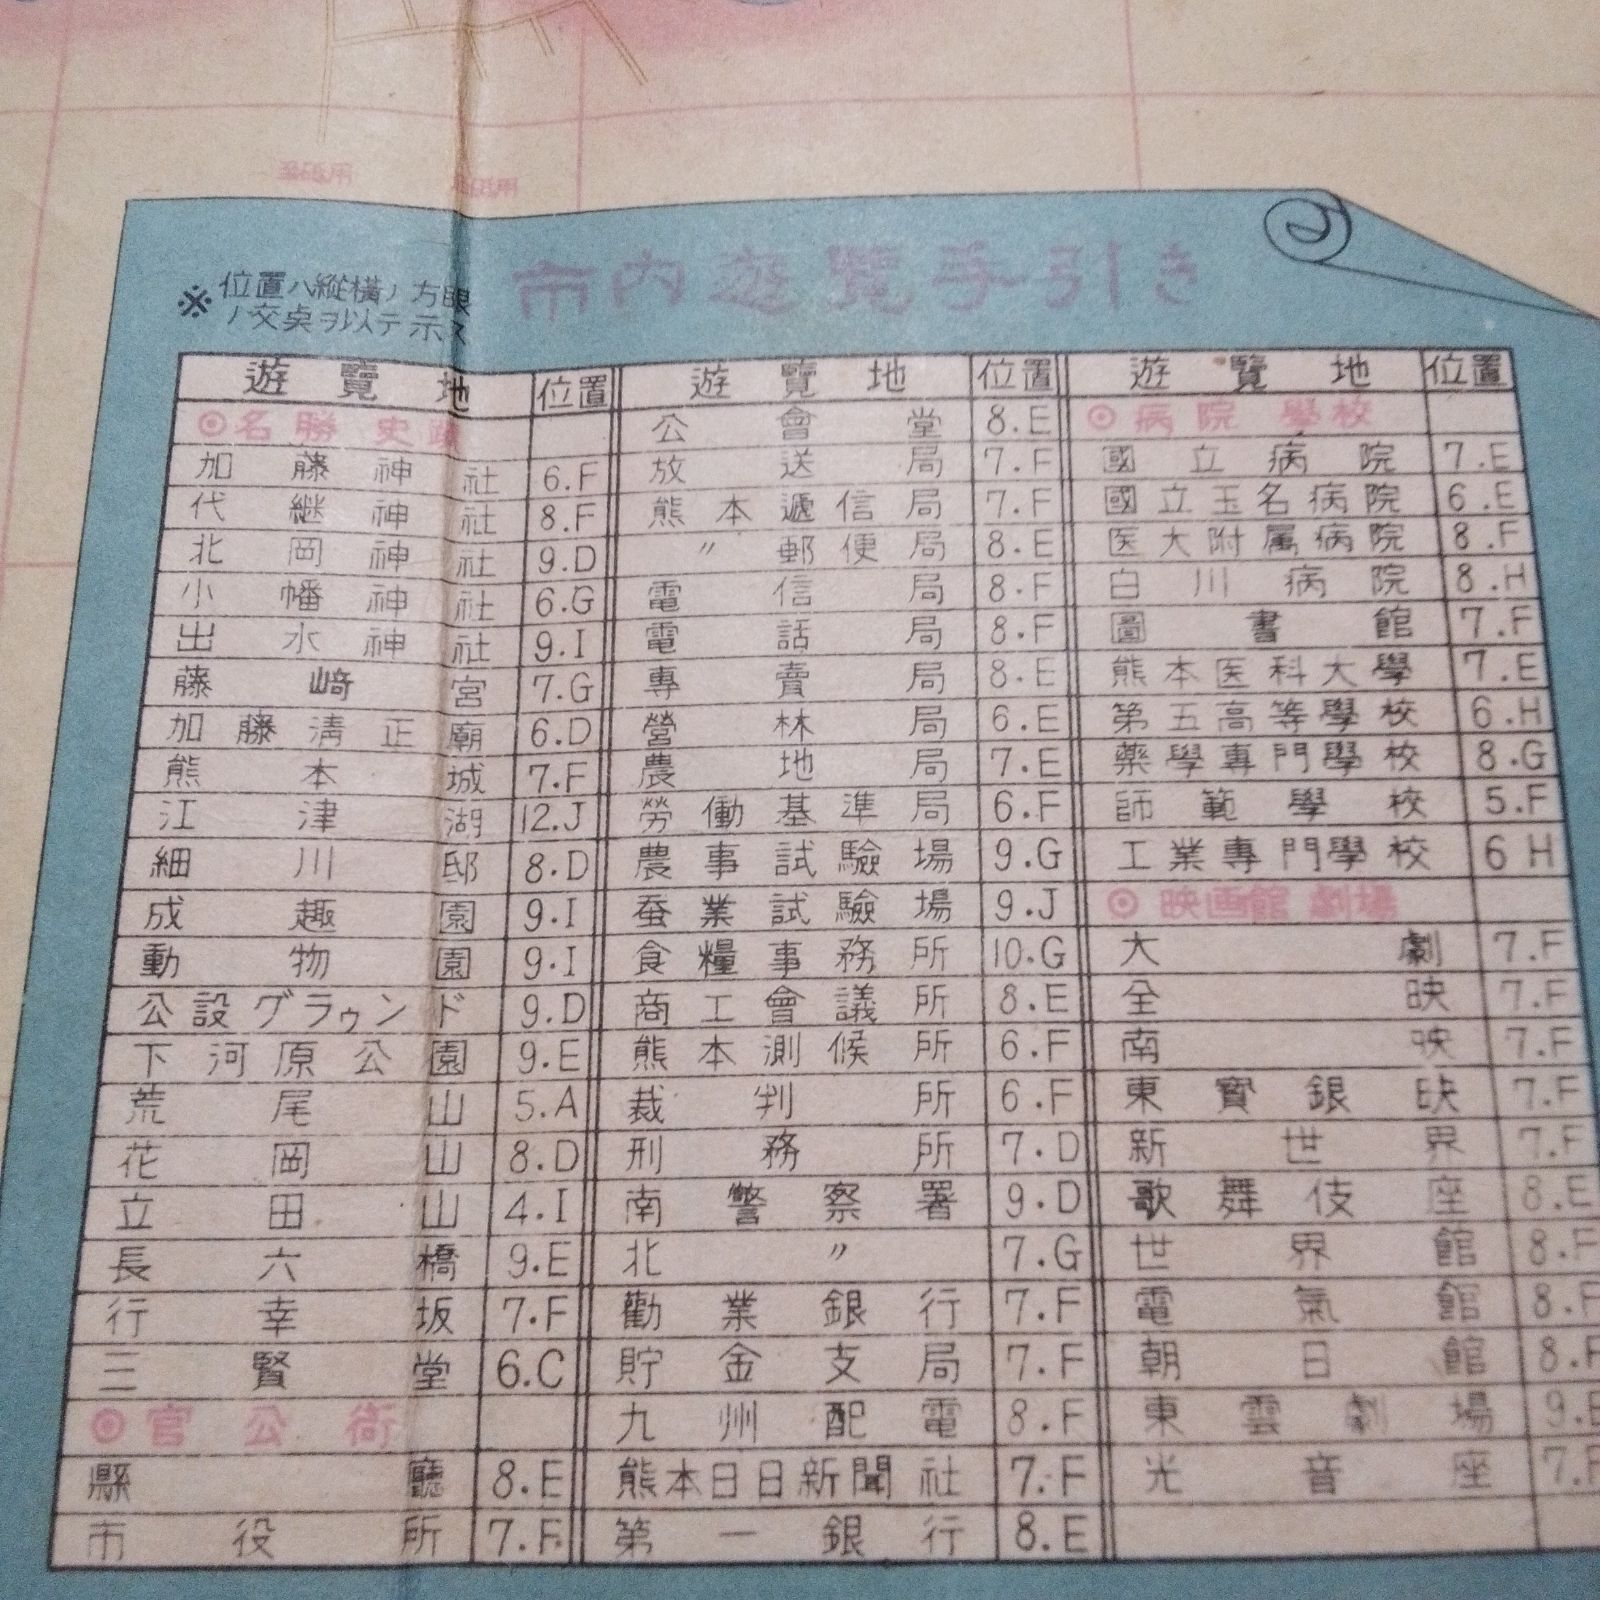 市内遊覧手引き
※位置ハ縦横ノ方眼
ノ交点ヲ以テ示ス
遊覽地 位置
◎名勝史蹟
加藤神社 6.F
代継神社 8.F
北岡神社 9.D
小幡神社 6.G
出水神社 9.I
藤崎宮 7.G
加藤清正廟 6.D
熊本城 7.F
江津湖 12.J
細川邸 8.D
成趣園 9.I
動物園 9.I
公設グラウンド 9.D
下河原公園 9.E
荒尾山 5.A
花岡山 8.D
立田山 4.I
長六橋 9.E
行幸坂 7.F
三賢堂 6.C
◎官公衙
縣廳 8.E
市役所 7.F
遊覽地 位置
公會堂 8.E
放送局 7.F
熊本遞信局 7.F
〃郵便局 8.E
電信局 8.F
電話局 8.F
專賣局 8.E
營林局 6.E
農地局 7.E
勞働基準局 6.F
農事試驗場 9.G
蚕業試驗場 9.J
食糧事務所 10.G
商工會議所 8.E
熊本測候所 6.F
裁判所 6.F
刑務所 7.D
南警察署 9.D
北〃 7.G
勸業銀行 7.F
貯金支局 7.F
九州配電 8.F
熊本日日新聞社 7.F
第一銀行 8.E
遊覽地 位置
◎病院 學校
國立病院 7.E
國立玉名病院 6.E
医大附属病院 8.F
白川病院 8.H
圖書館 7.F
熊本医科大學 7.E
第五高等學校 6.H
藥學專門學校 8.G
師範學校 5.F
工業專門學校 6 H
◎映画館 劇場
大劇 7.F
全映 7.F
南映 7.F
東寶銀映 7.F
新世界 7.F
歌舞伎座 8.E
世界館 8.F
電氣館 8.F
朝日館 8.F
東雲劇場 9.E
光音座 7.F